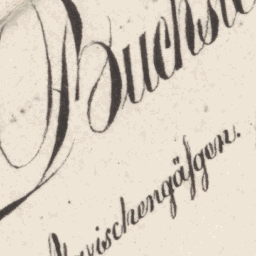 Buchste
Zwischengäßgen.